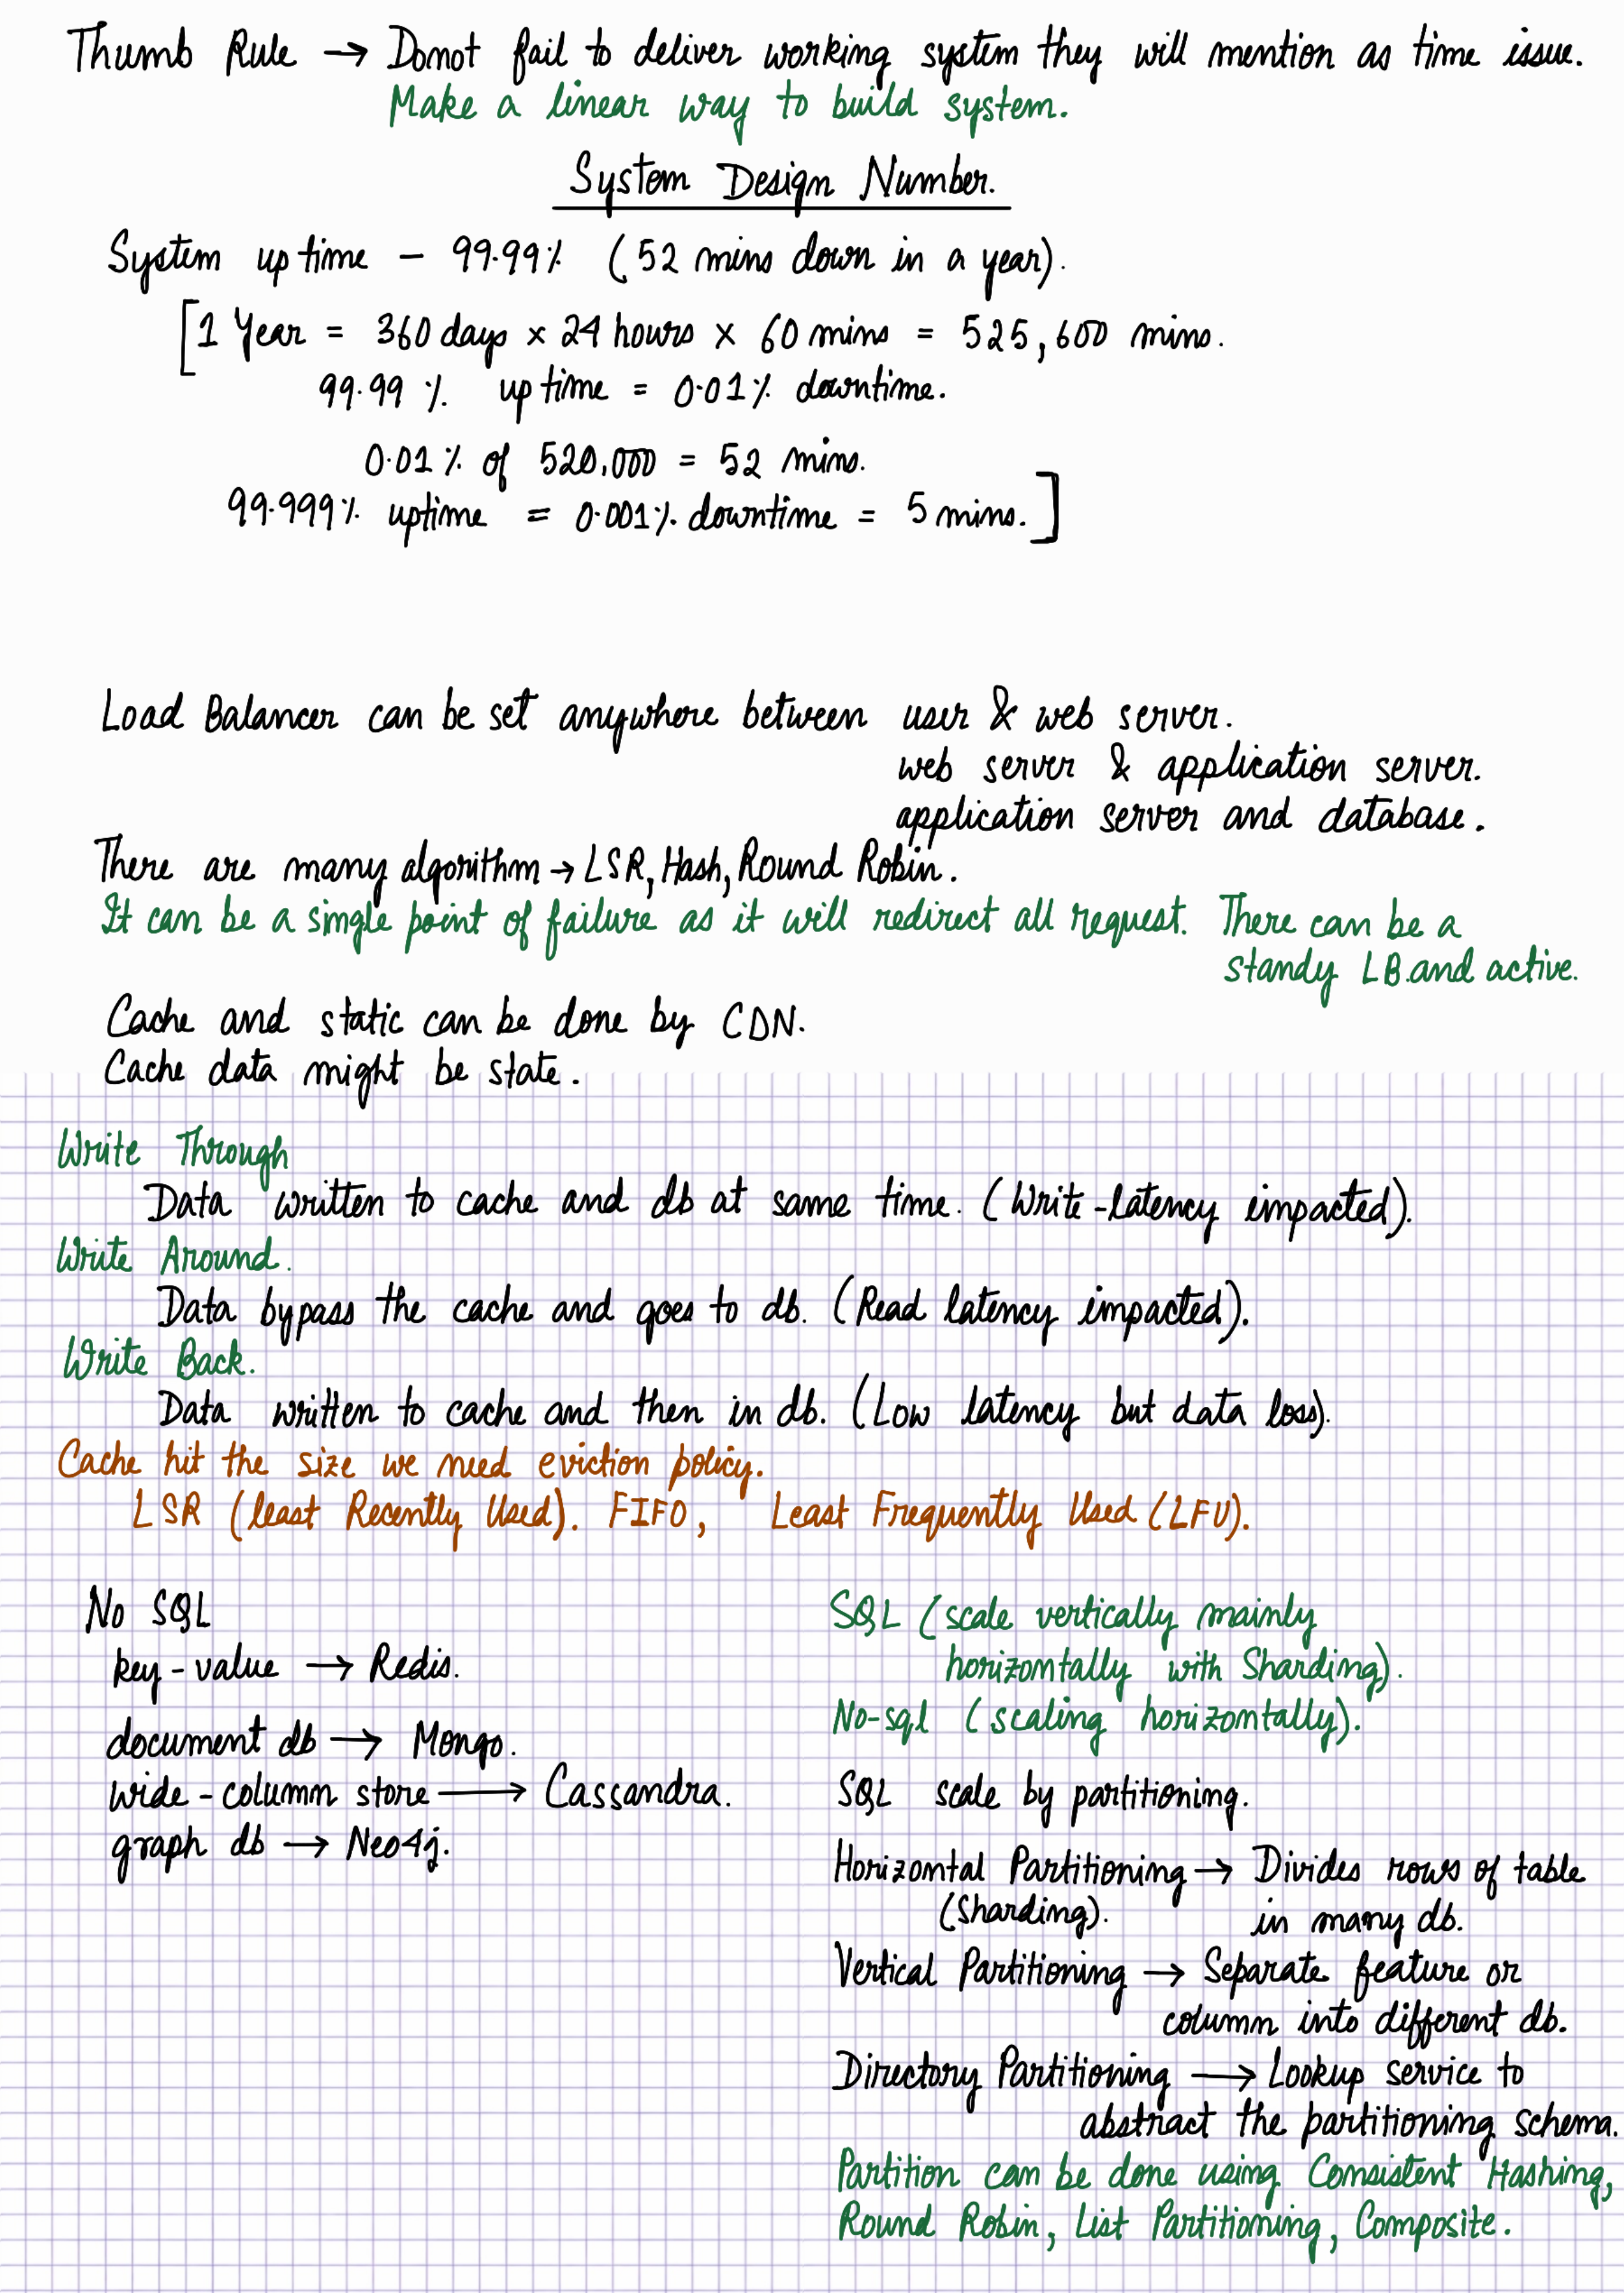 Thumb Rule → Donot fail to deliver working system they will mention as time issue.
Make a linear way to build system.
System Design Number.
System up time - 99.99% (52 mins down in a year).
[1 Year = 360 days × 24 hours × 60 mins = 525,600 mins.
99.99 % up time = 0.01% downtime.
0.01 % of 520,000 = 52 mins.
99.999% uptime = 0.001% downtime = 5 mins.]
Load Balancer can be set anywhere between user & web server.
web server & application server.
application server and database.
There are many algorithm → LSR, Hash, Round Robin.
It can be a single point of failure as it will redirect all request. There can be a
standy LB.and active.
Cache and static can be done by CDN.
Cache data might be state.
Write Through
Data written to cache and db at same time. (Write-latency impacted).
Write Around.
Data bypass the cache and goes to db. (Read latency impacted).
Write Back.
Data written to cache and then in db. (Low latency but data loss).
Cache hit the size we need eviction policy.
LSR (least Recently Used). FIFO, Least Frequently Used (LFU).
No SQL
key-value → Redis.
document db → Mongo.
wide-column store → Cassandra.
graph db → Neo4j.
SQL (scale vertically mainly
horizontally with Sharding).
No-sql (scaling horizontally).
SQL scale by partitioning.
Horizontal Partitioning → Divides rows of table
(Sharding). in many db.
Vertical Partitioning → Separate feature or
column into different db.
Directory Partitioning → Lookup service to
abstract the partitioning schema.
Partition can be done using Consistent Hashing,
Round Robin, List Partitioning, Composite.